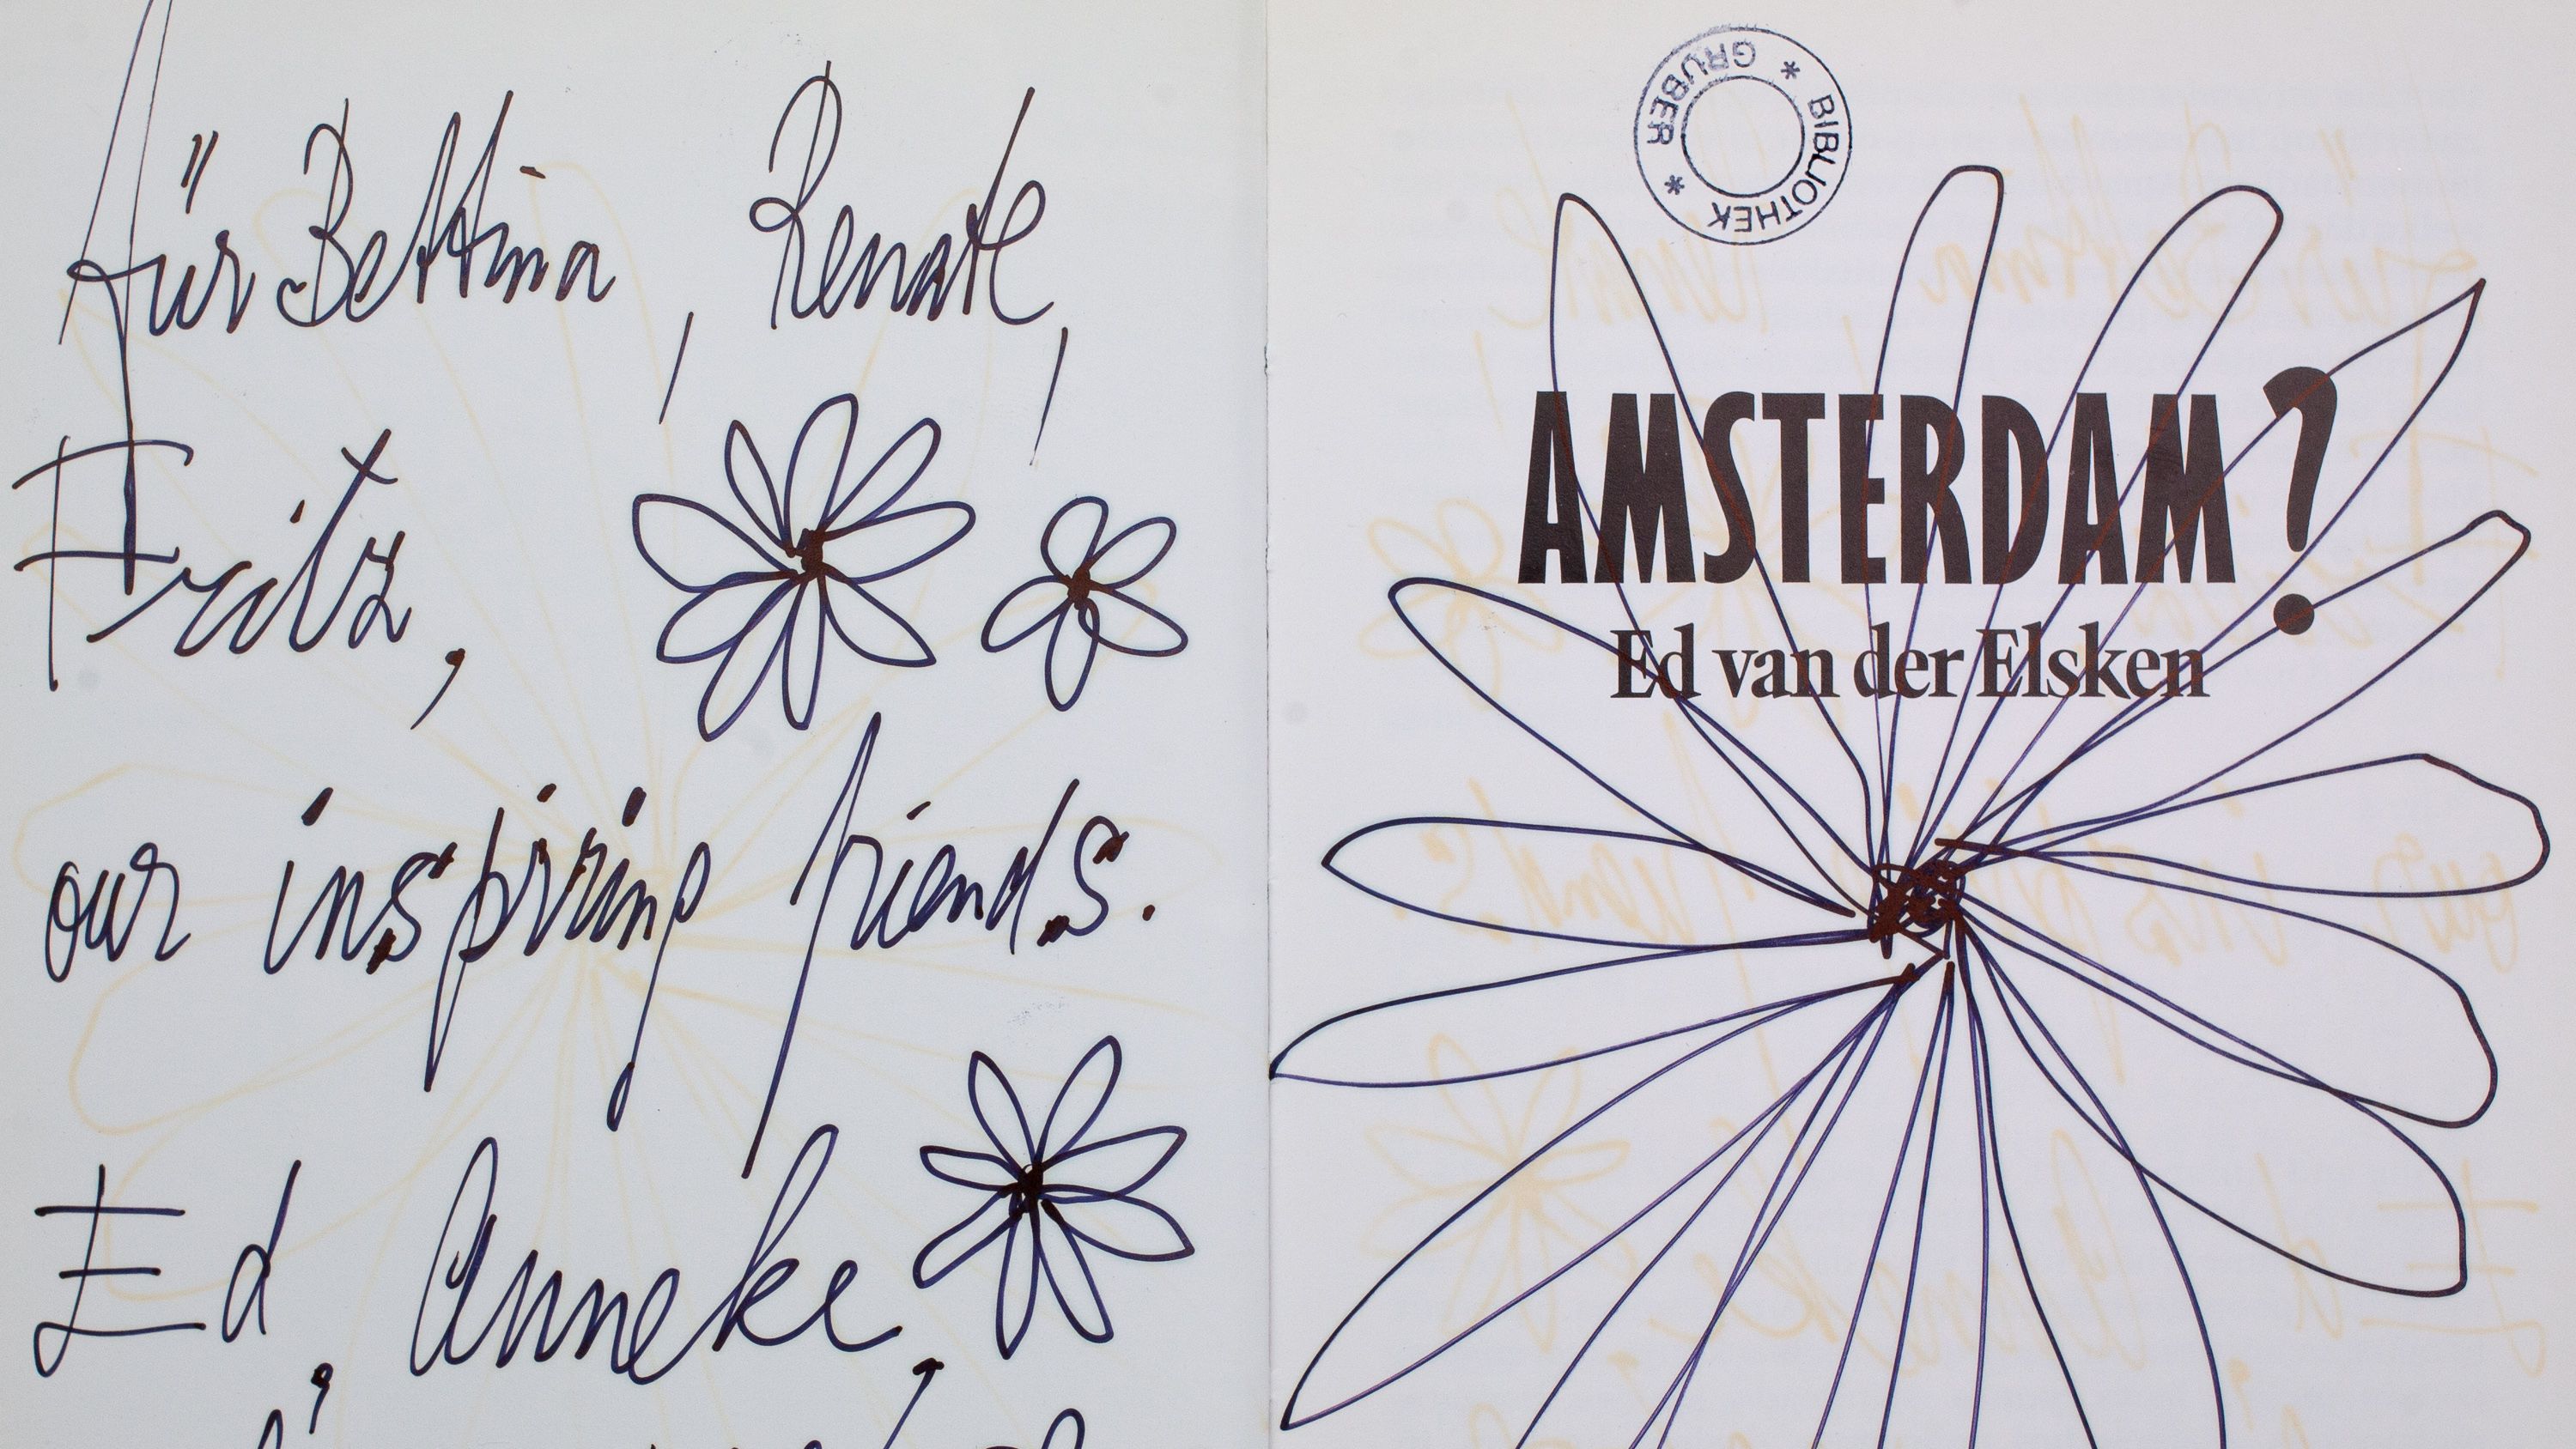 für Bettina, Renate,
Fritz,
our inspiring friends.
Ed, Anneke,
BIBLIOTHEK * GRUBER *
AMSTERDAM?
Ed van der Elsken